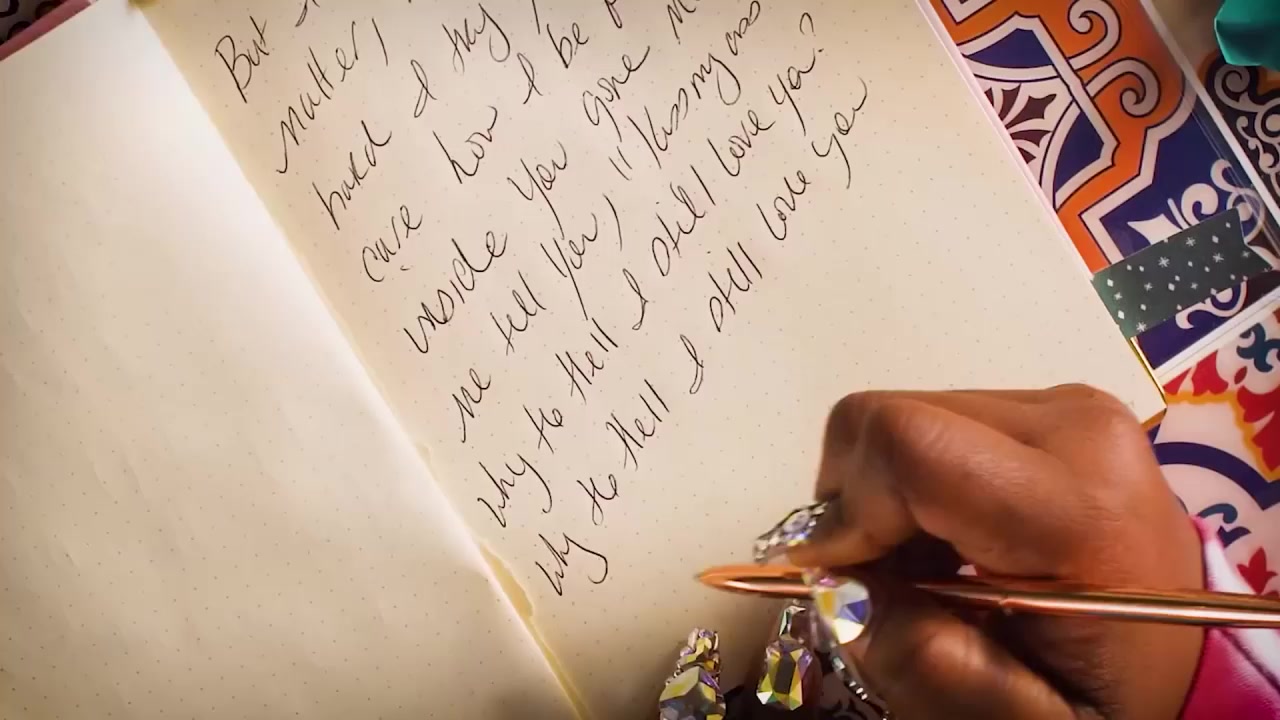 But
matter,
hard I try
care how I be
inside you gone
me tell you, "kiss my ass
why to hell I still love ya?
why to hell I still love you